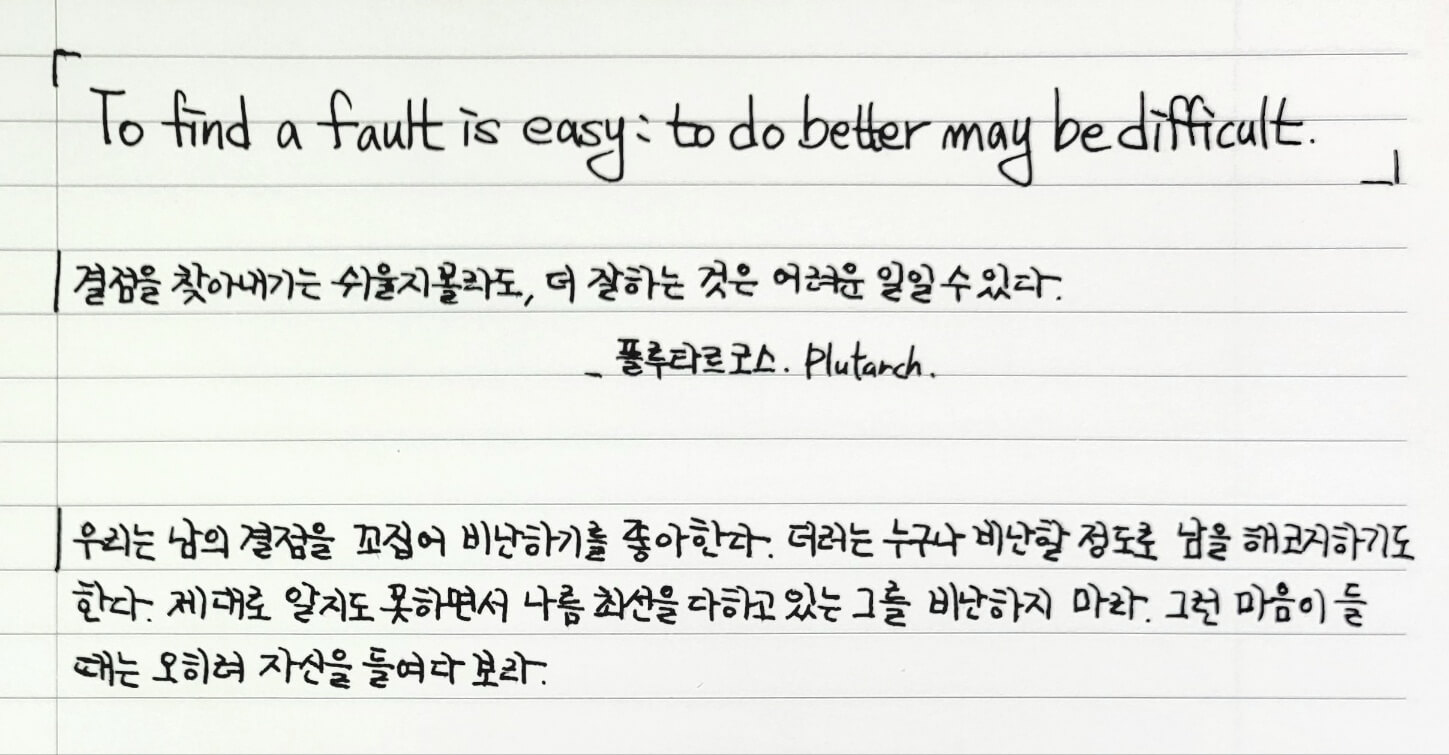 「To find a fault is easy: to do better may be difficult.」
결점을 찾아내기는 쉬울지몰라도, 더 잘하는 것은 어려운 일일 수 있다.
_ 플루타르코스. Plutarch.
우리는 남의 결점을 꼬집어 비난하기를 좋아한다. 더러는 누구나 비난할 정도로 남을 해코지하기도
한다. 제대로 알지도 못하면서 나름 최선을 다하고 있는 그를 비난하지 마라. 그런 마음이 들
때는 오히려 자신을 들여다 보라.